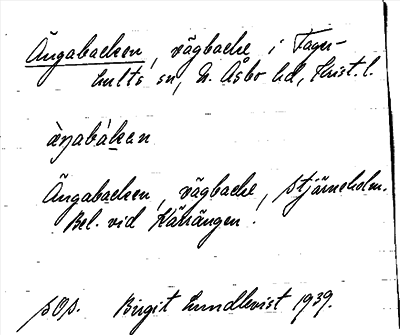 Ängabacken, vägbacke i Fager-
hults sn, N. Åsbo hd, Krist. l.
äŋabákan
Ängabacken, vägbacke, Stjärneholm.
Bel. vid Kärrängen.
sOs. Birgit Lundkvist 1939.